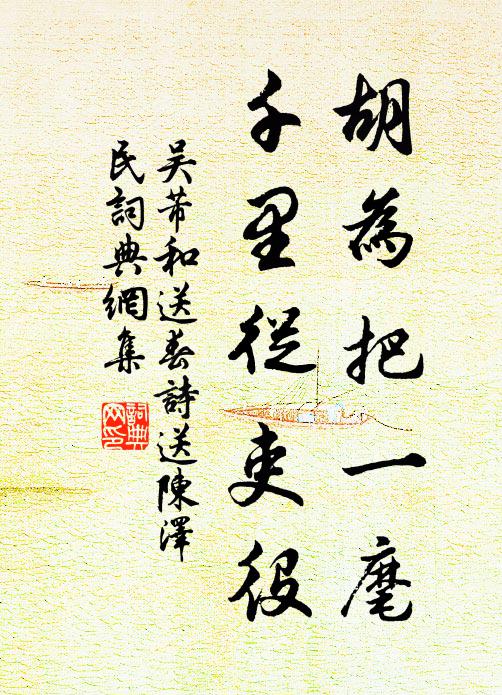 胡為把一麾
千里從吏役
吳芾和送春詩送陳澤
民詞典網集
詞典網印